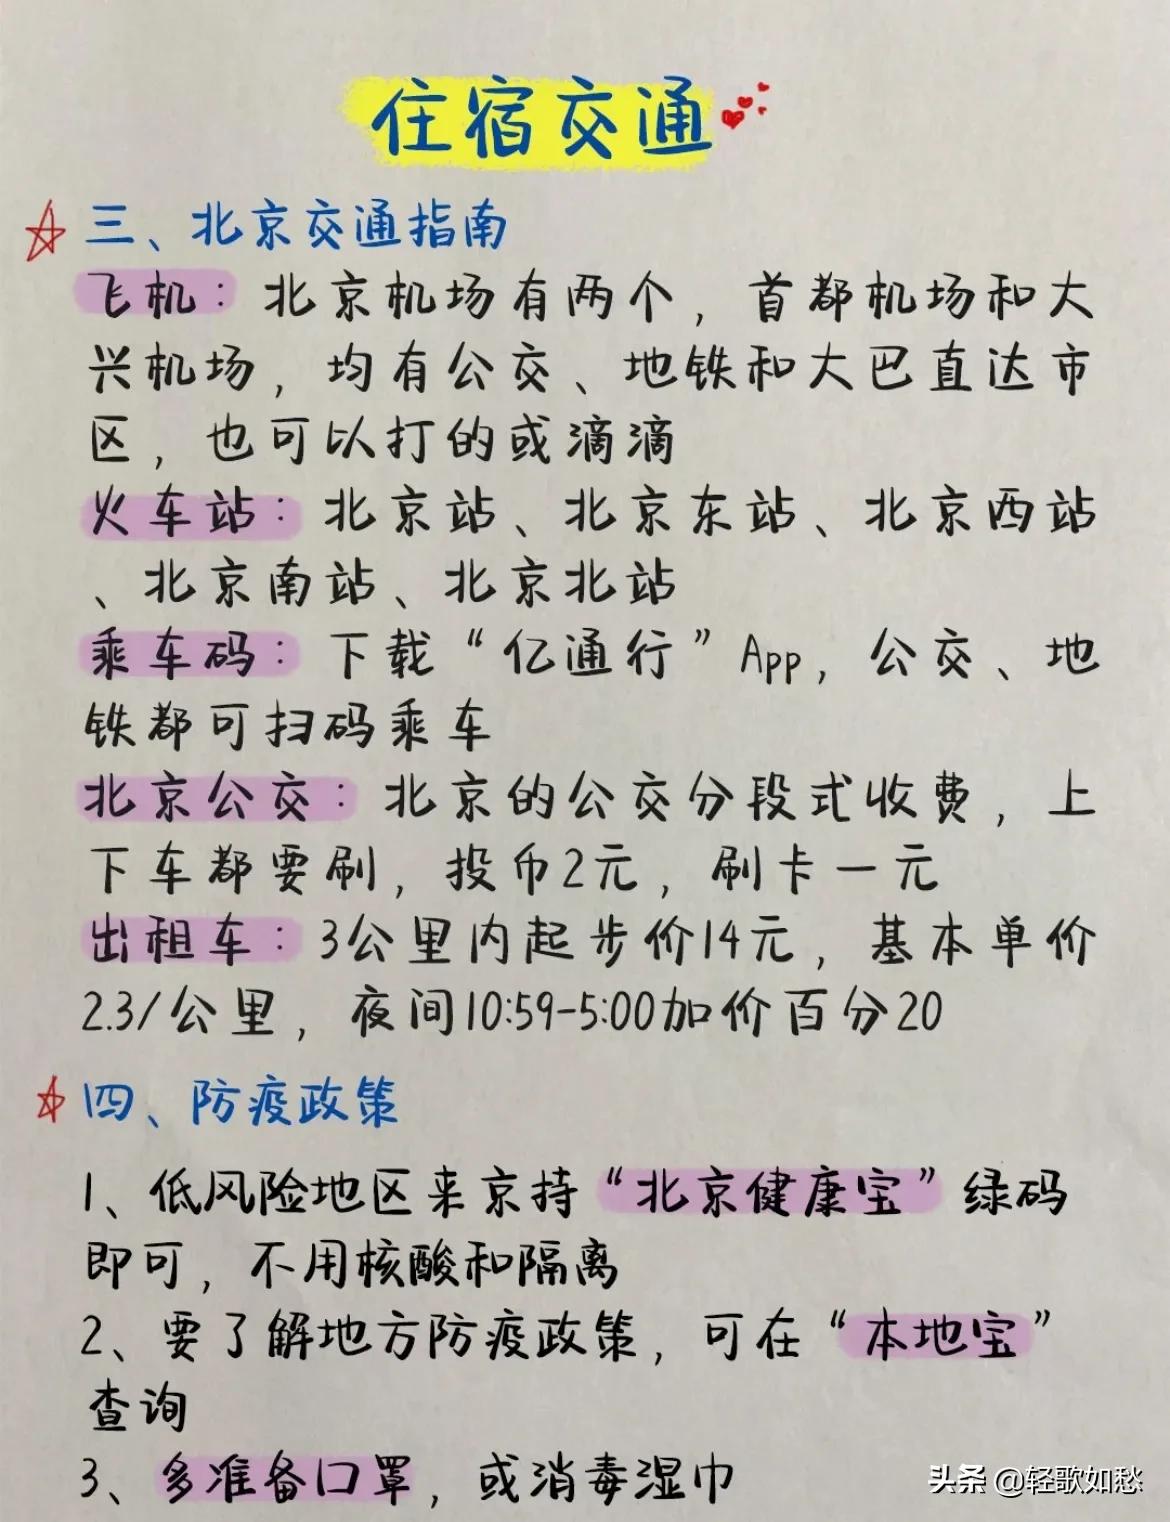 住宿交通
三、北京交通指南
飞机：北京机场有两个，首都机场和大
兴机场，均有公交、地铁和大巴直达市
区，也可以打的或滴滴
火车站：北京站、北京东站、北京西站
、北京南站、北京北站
乘车码：下载“亿通行”App，公交、地
铁都可扫码乘车
北京公交：北京的公交分段式收费，上
下车都要刷，投币2元，刷卡一元
出租车：3公里内起步价14元，基本单价
2.3/公里，夜间10:59-5:00加价百分20
四、防疫政策
1、低风险地区来京持“北京健康宝”绿码
即可，不用核酸和隔离
2、要了解地方防疫政策，可在“本地宝”
查询
3、多准备口罩，或消毒湿巾
头条 @轻歌如愁